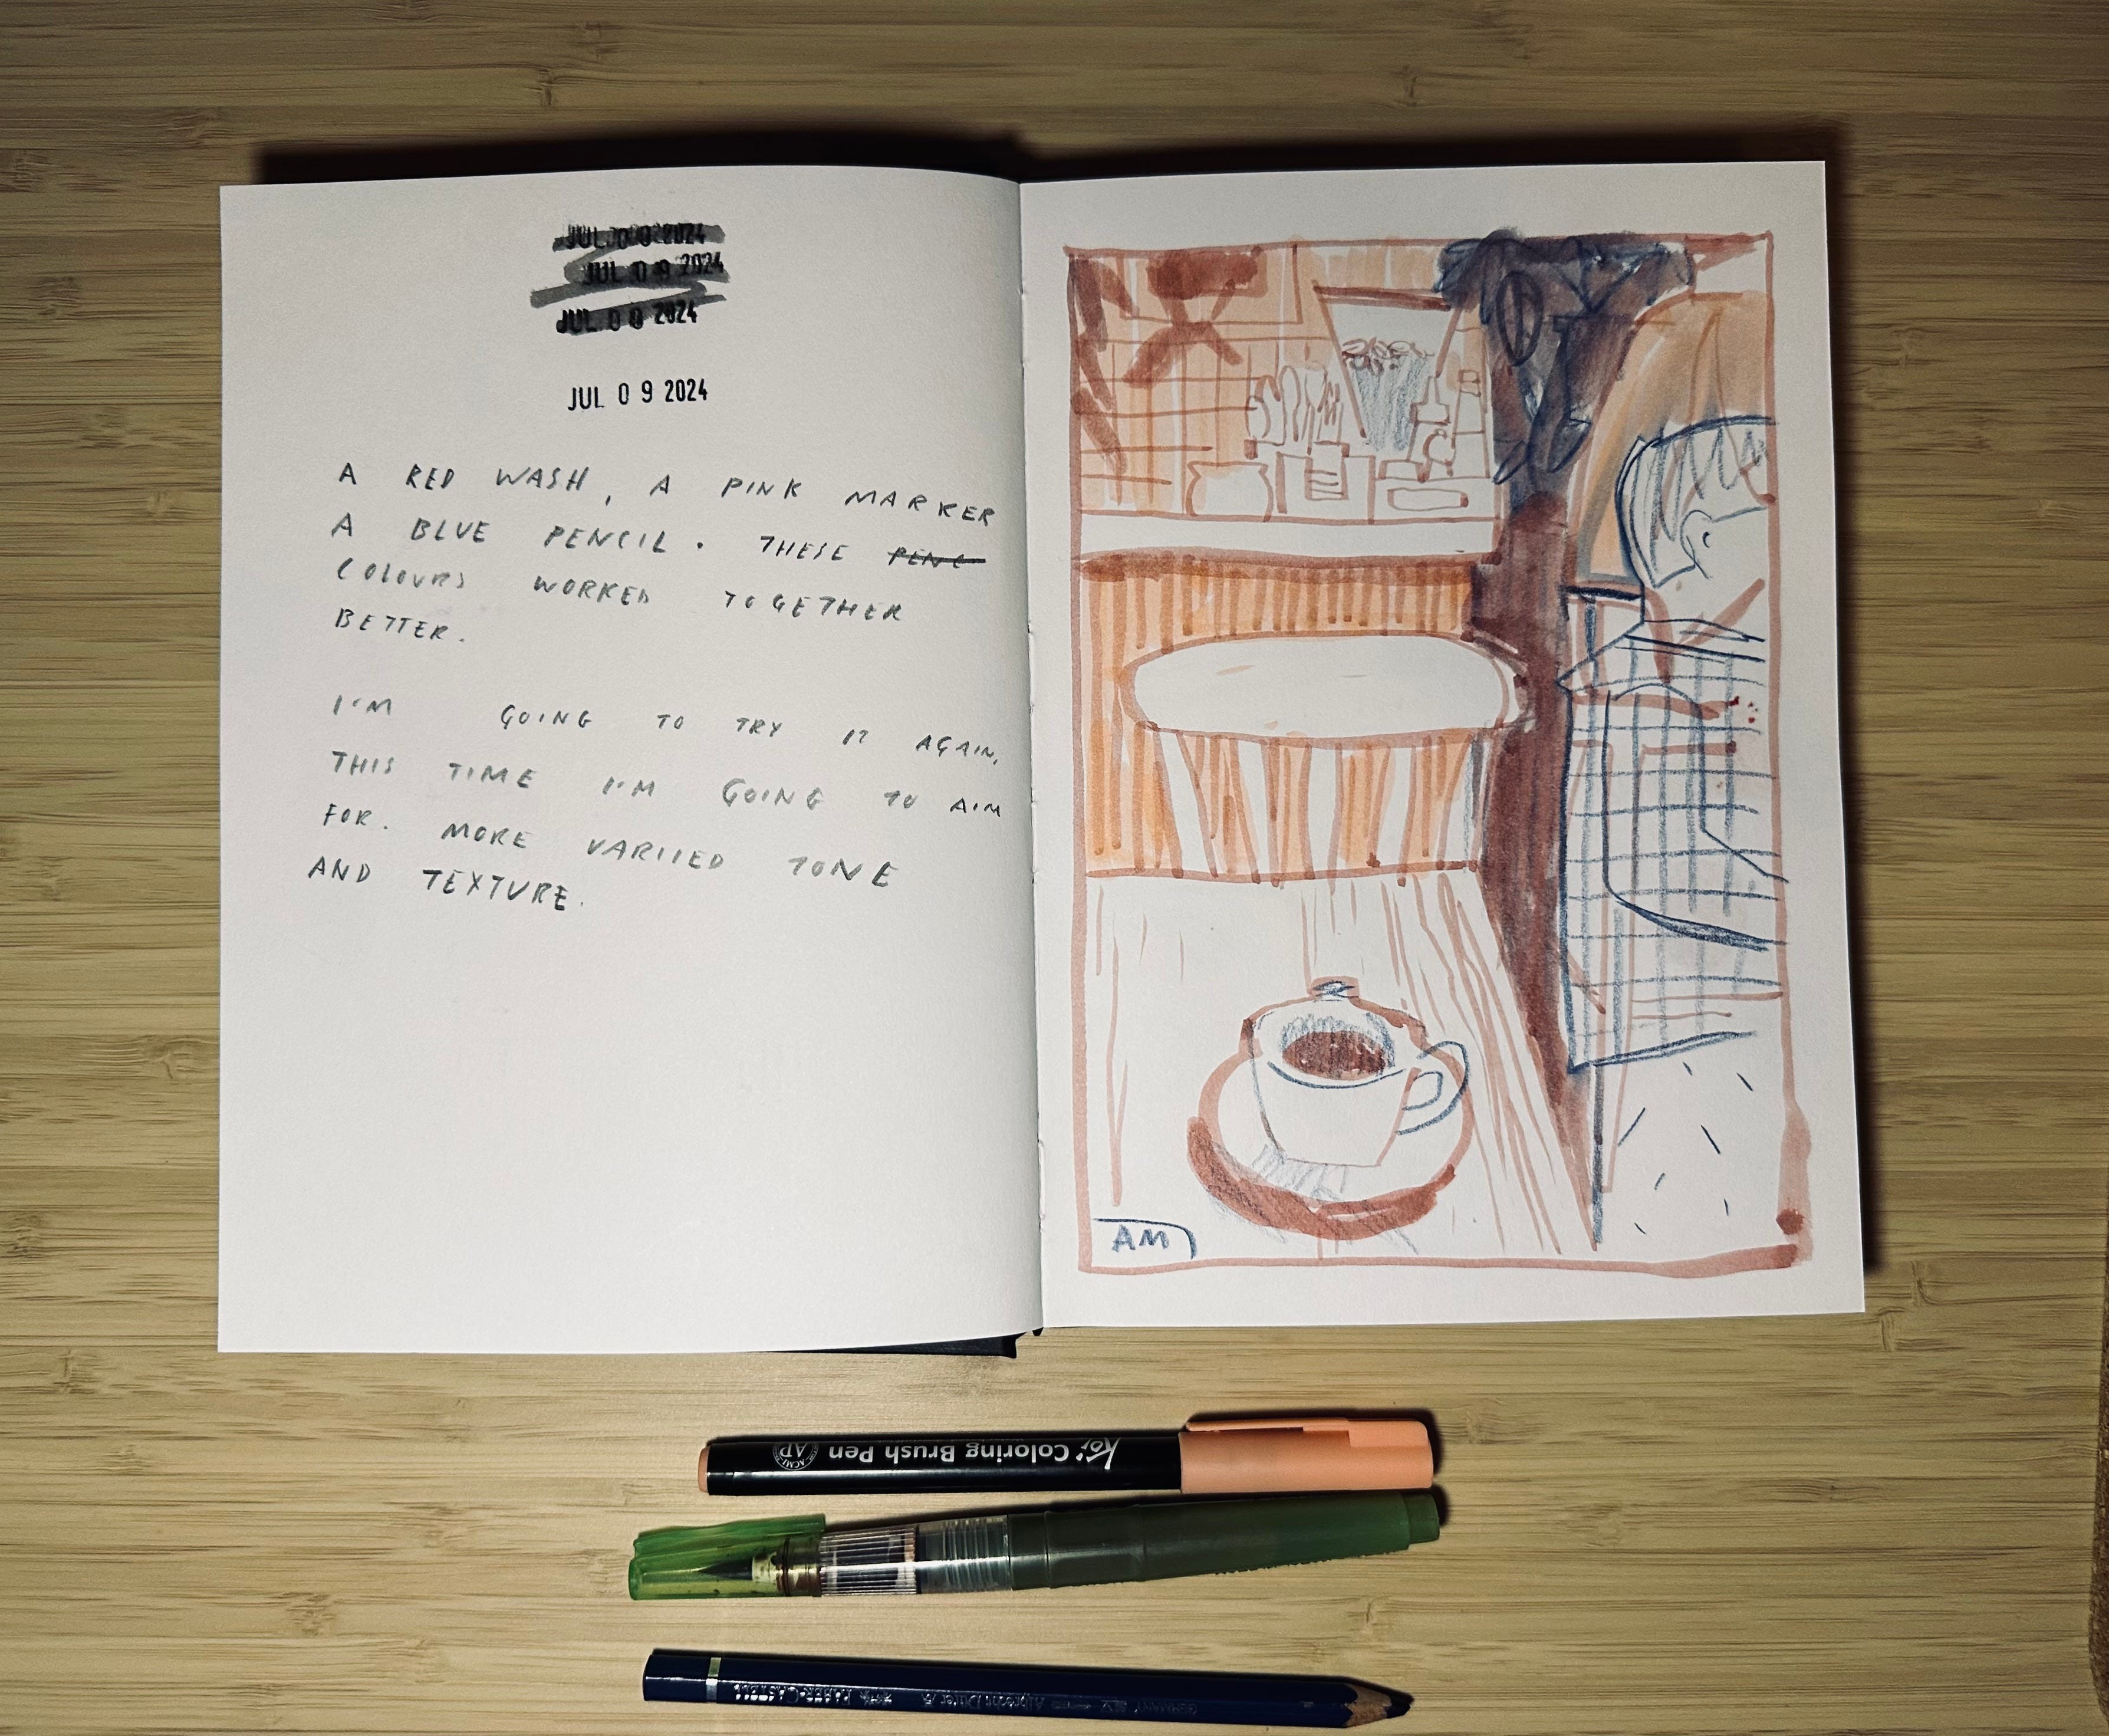 JUL 09 2024
JUL 09 2024
JUL 00 2024
JUL 09 2024
A RED WASH, A PINK MARKER
A BLUE PENCIL. THESE PENC
COLOURS WORKED TOGETHER
BETTER.
I'M GOING TO TRY IT AGAIN,
THIS TIME I'M GOING TO AIM
FOR. MORE VARIIED TONE
AND TEXTURE.
AM
Koi Coloring Brush Pen
ACMI AP
FABER-CASTELL Albrecht Dürer GERMANY